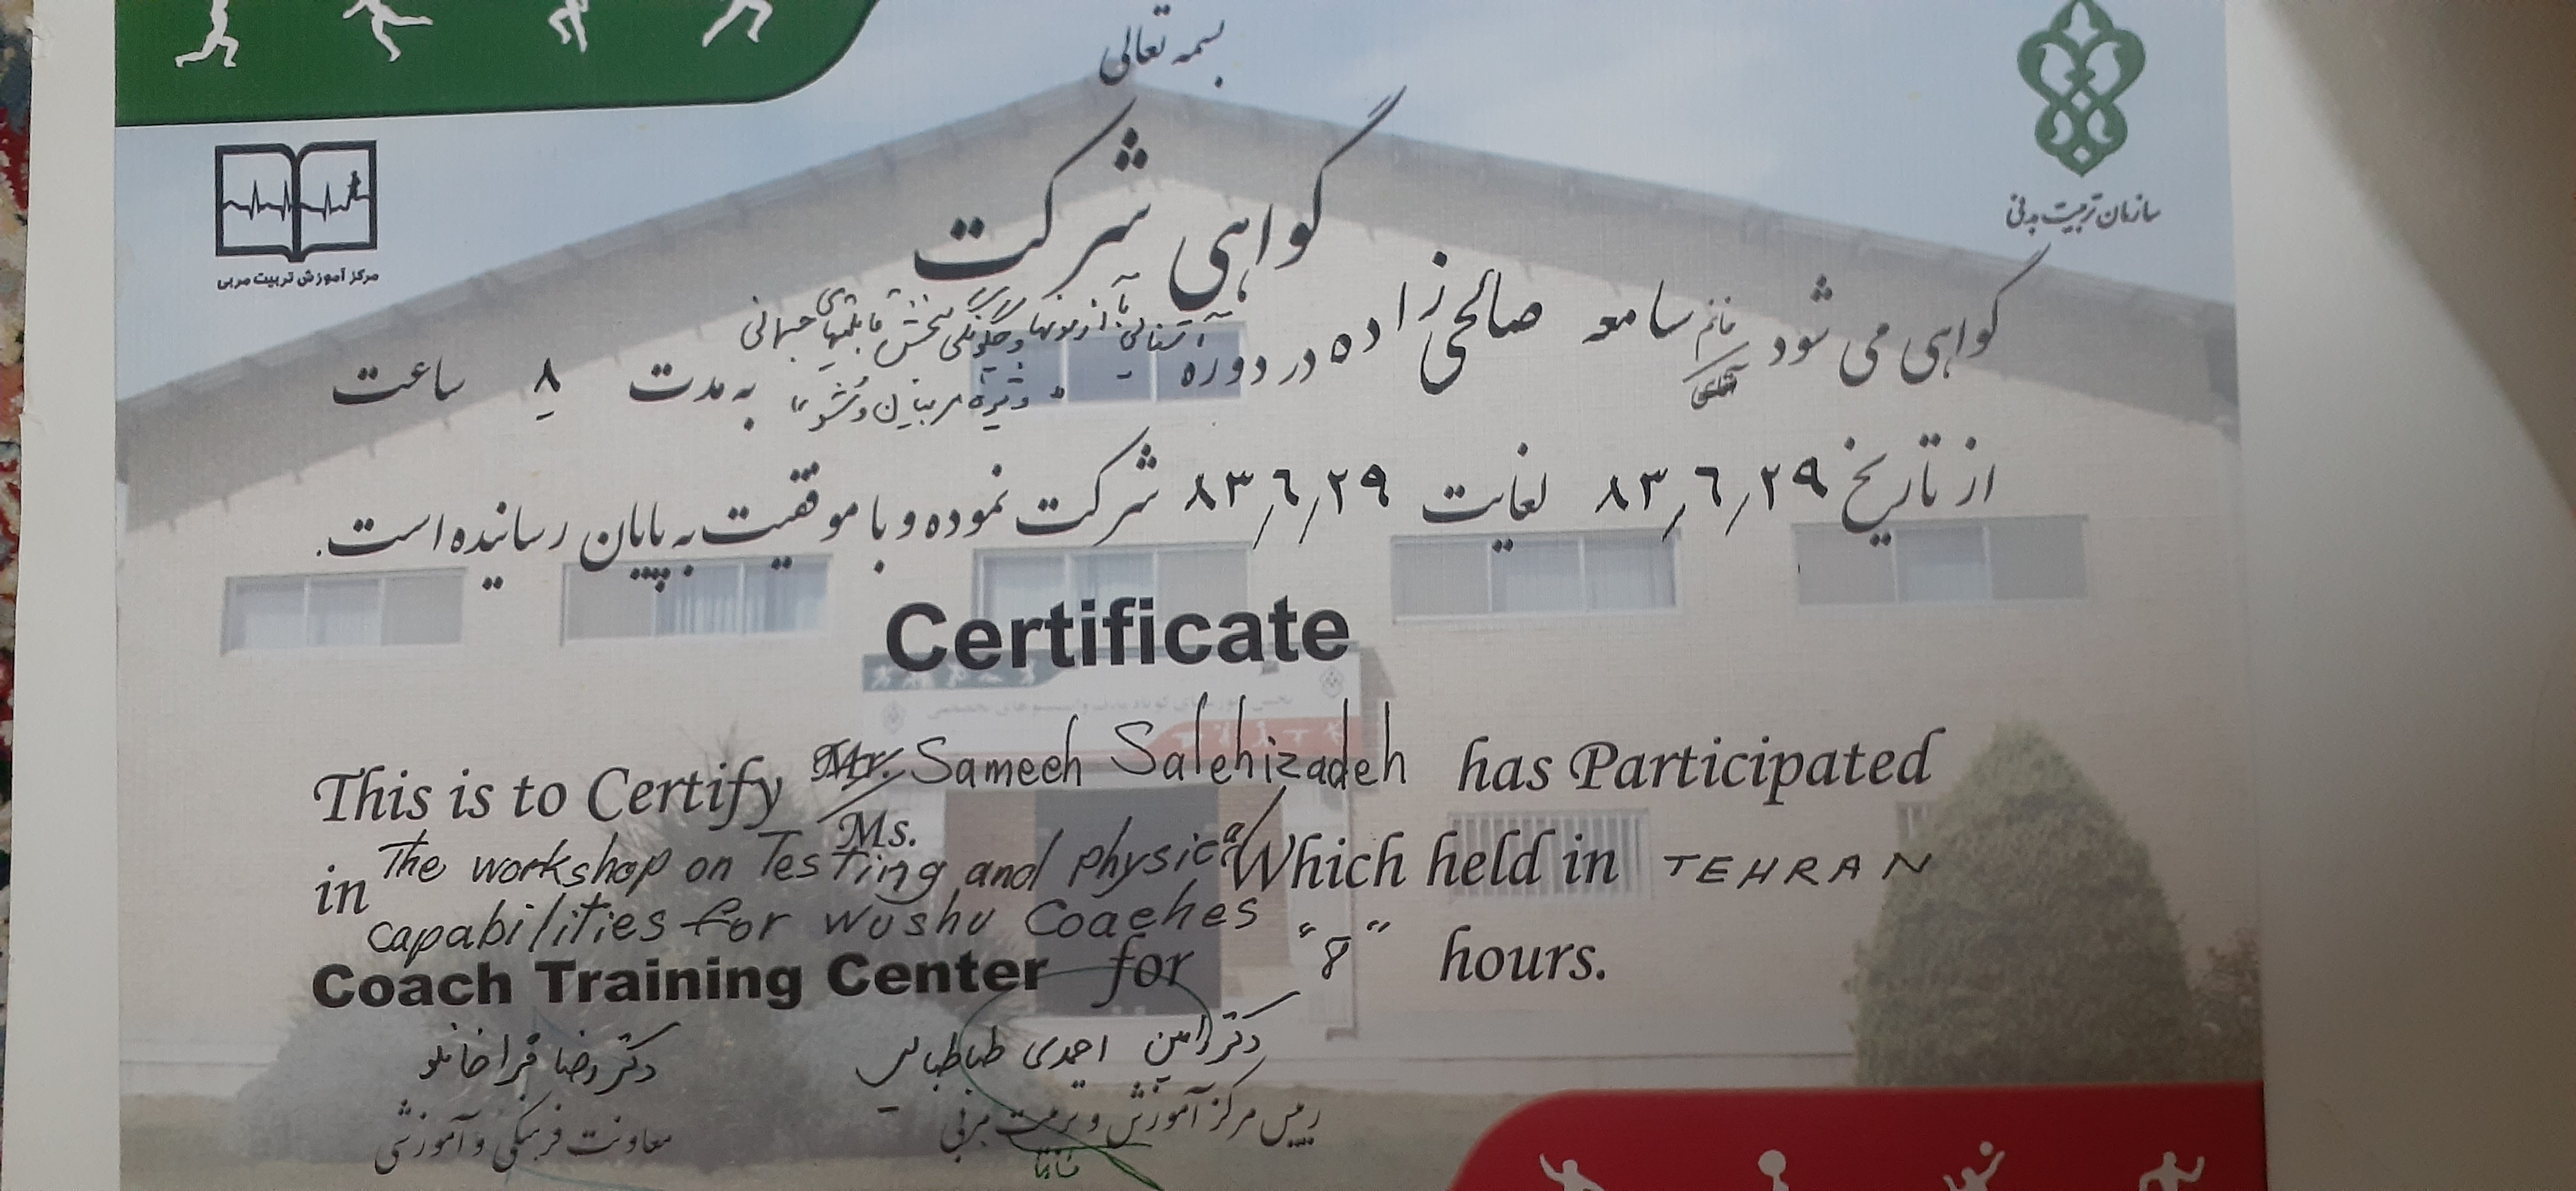 بسمه تعالی
سازمان تربیت بدنی
مرکز آموزش تربیت مربی
گواهی شرکت
گواهی می شود خانم سامعه صالحی زاده در دوره آشنائی با آزمونها و چگونگی سنجش قابلیتهای جسمانی
آقای
ویژه مربیان ووشو به مدت ۸ ساعت
از تاریخ ۸۳/۶/۲۹ لغایت ۸۳/۶/۲۹ شرکت نموده و با موفقیت به پایان رسانیده است.
Certificate
This is to Certify Mr. Sameeh Salehizadeh has Participated
Ms.
in The workshop on Testing and physical Which held in TEHRAN
capabilities for wushu Coaches
Coach Training Center for "8" hours.
دکتر رامین احمدی طباطبایی
رییس مرکز آموزش و تربیت مربی
دکتر رضا قراخانلو
معاونت فرهنگی و آموزشی